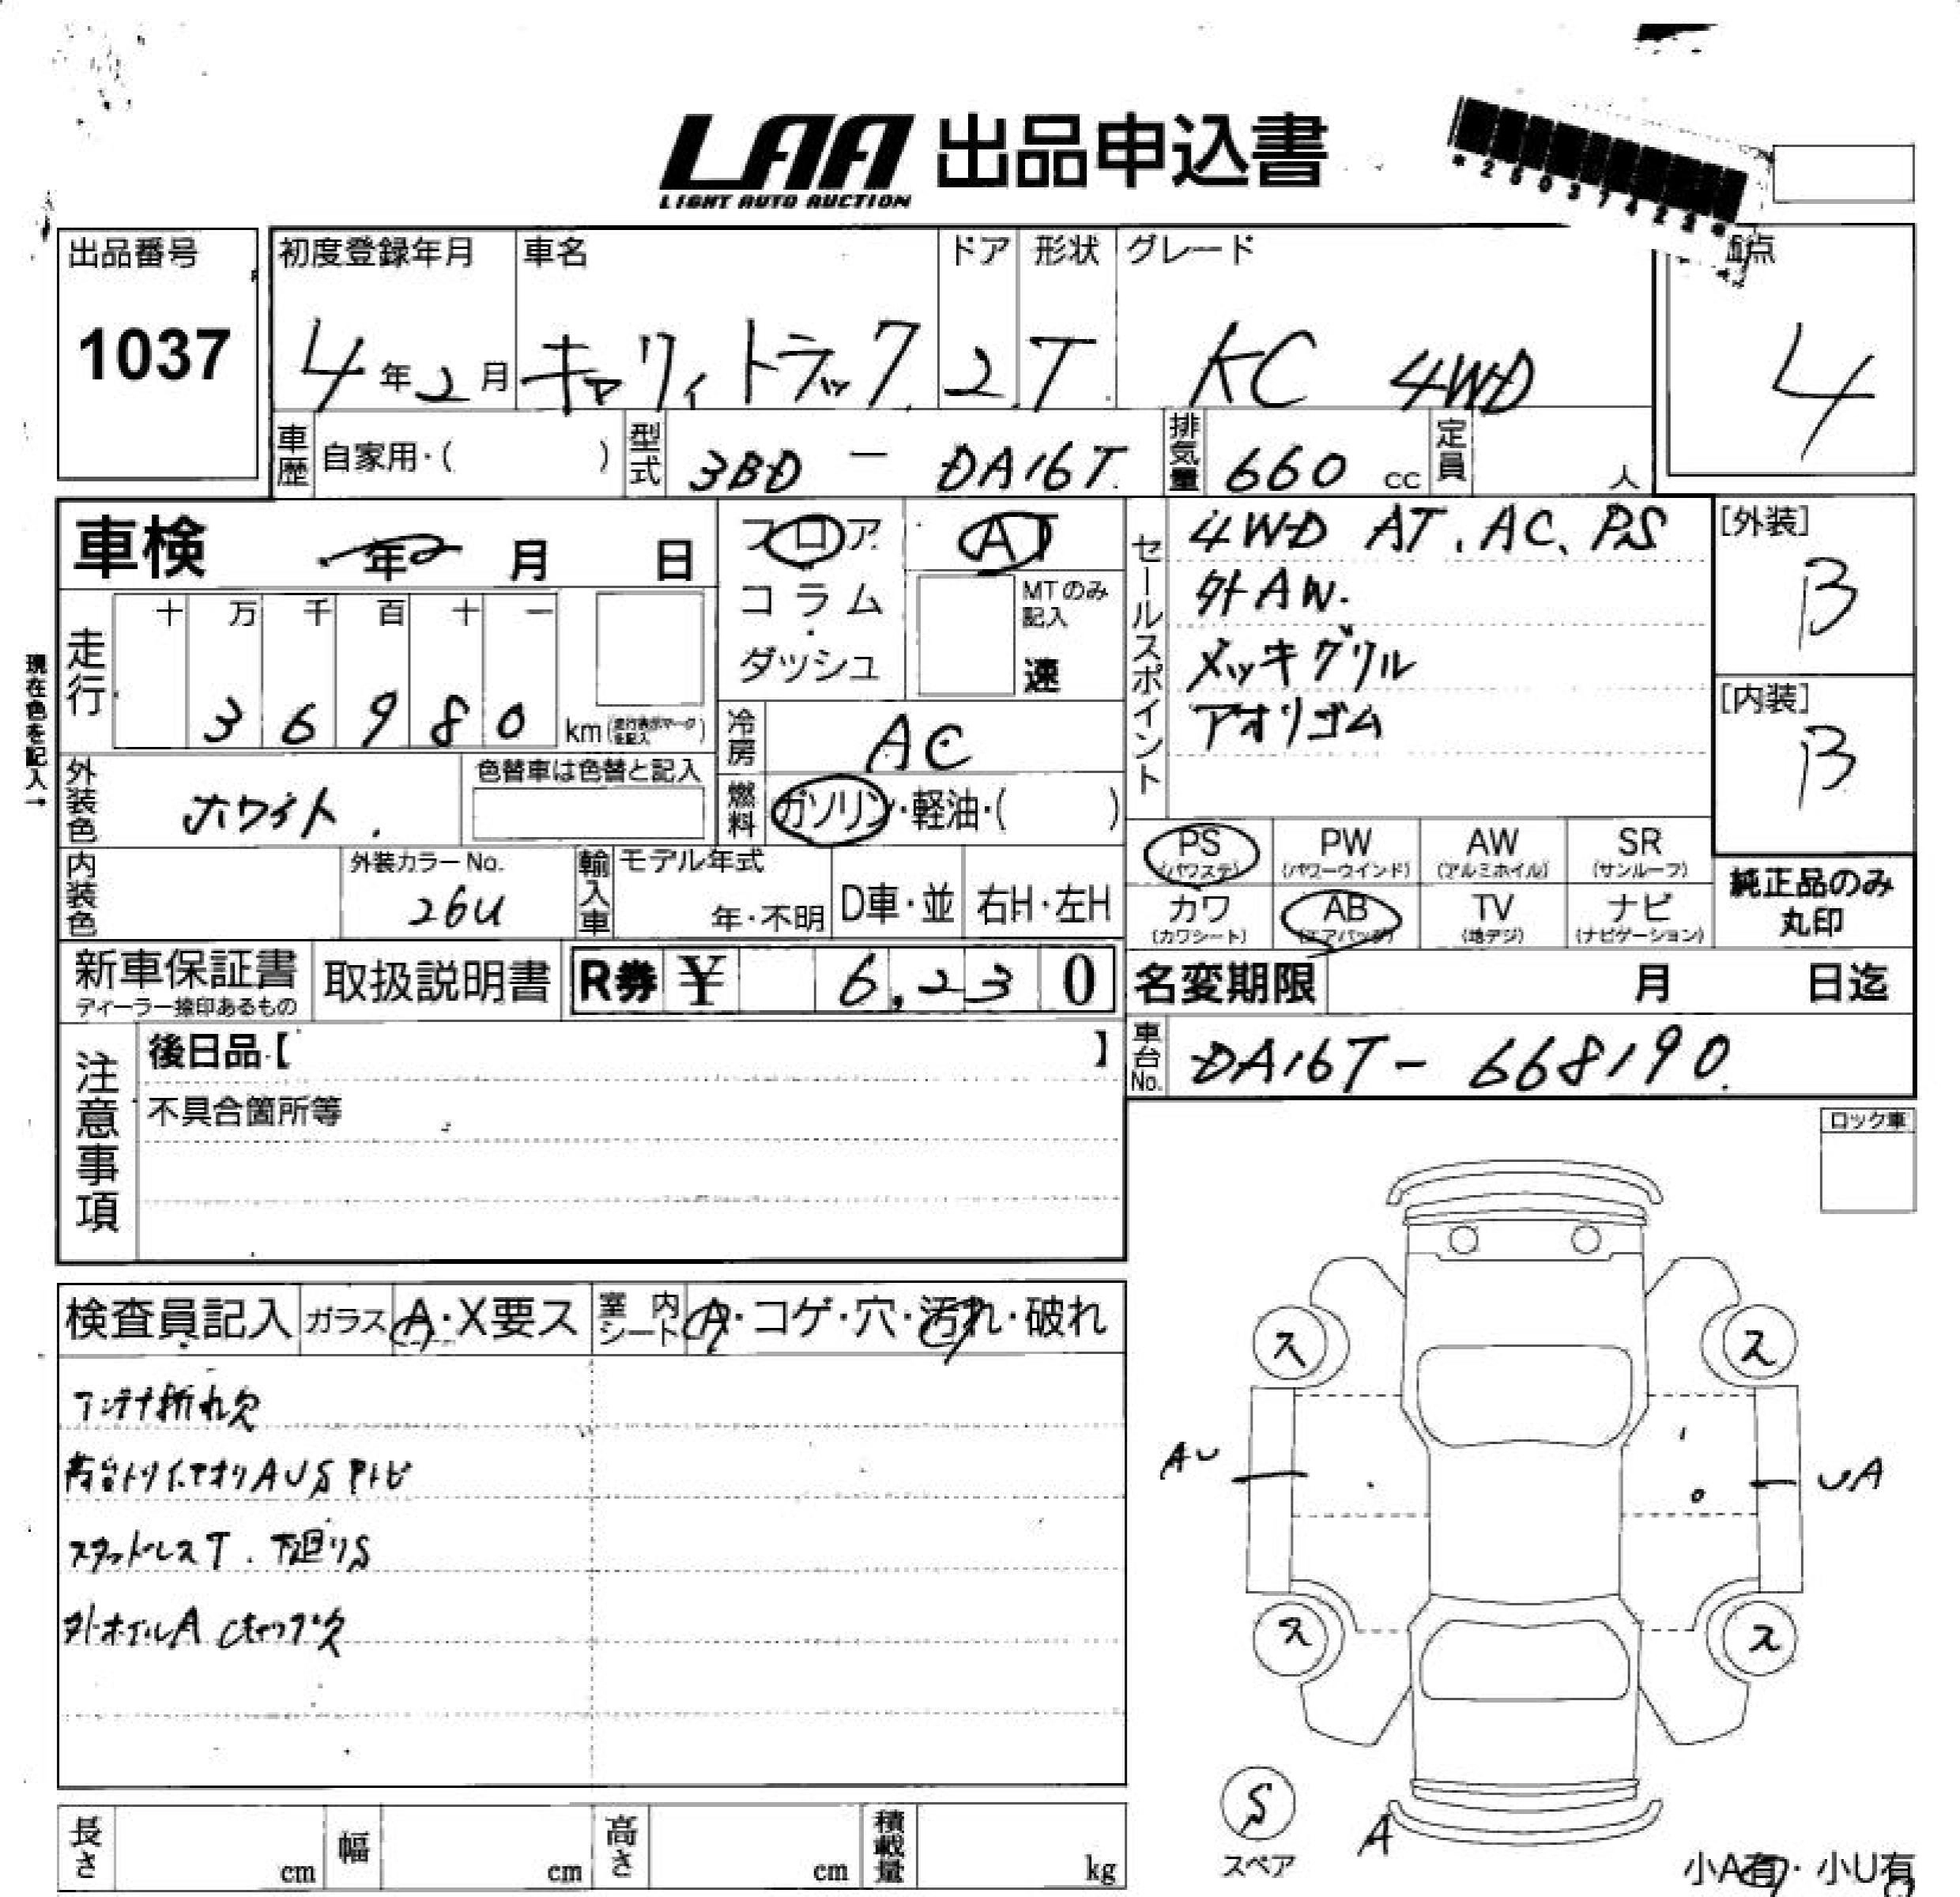 LAA 出品申込書
LIGHT AUTO AUCTION
*25037423*
出品番号
1037
初度登録年月
4年2月
車名
キャリィトラック
ドア
2
形状
T
グレード
KC 4WD
点
4
車歴
自家用・( )
型式
3BD - DA16T
排気量
660 cc
定員
人
車検
年 月 日
フロア
コラム
・
ダッシュ
AT
MTのみ
記入
速
セールスポイント
4WD AT. AC. PS
外AW.
メッキグリル
アオリゴム
[外装]
B
[内装]
B
現在色を記入→
走行
十 万 千 百 十 一
3 6 9 8 0 km
冷房
AC
燃料
ガソリン・軽油・( )
外装色
ホワイト.
色替車は色替と記入
内装色
外装カラーNo.
26U
輸入車
モデル年式
年・不明
D車・並
右H・左H
PS
(パワステ)
PW
(パワーウインド)
AW
(アルミホイル)
SR
(サンルーフ)
カワ
(カワシート)
AB
(エアバッグ)
TV
(地デジ)
ナビ
(ナビゲーション)
純正品のみ
丸印
新車保証書
ディーラー捺印あるもの
取扱説明書
R券 ¥ 6,230
名変期限
月 日迄
車台No.
DA16T-668190.
注意事項
後日品【 】
不具合箇所等
ロック車
検査員記入
ガラス
A・X要ス
室内シート
A・コゲ・穴・汚れ・破れ
アンテナ折れ欠
荷台トリイ.アオリAUSサトビ
スタッドレスT. 下廻りS
外ホイルA Cキャップ欠
ス
ス
AU
UA
ス
ス
S
スペア
A
小A有・小U有
長さ
cm
幅
cm
高さ
cm
積載量
kg